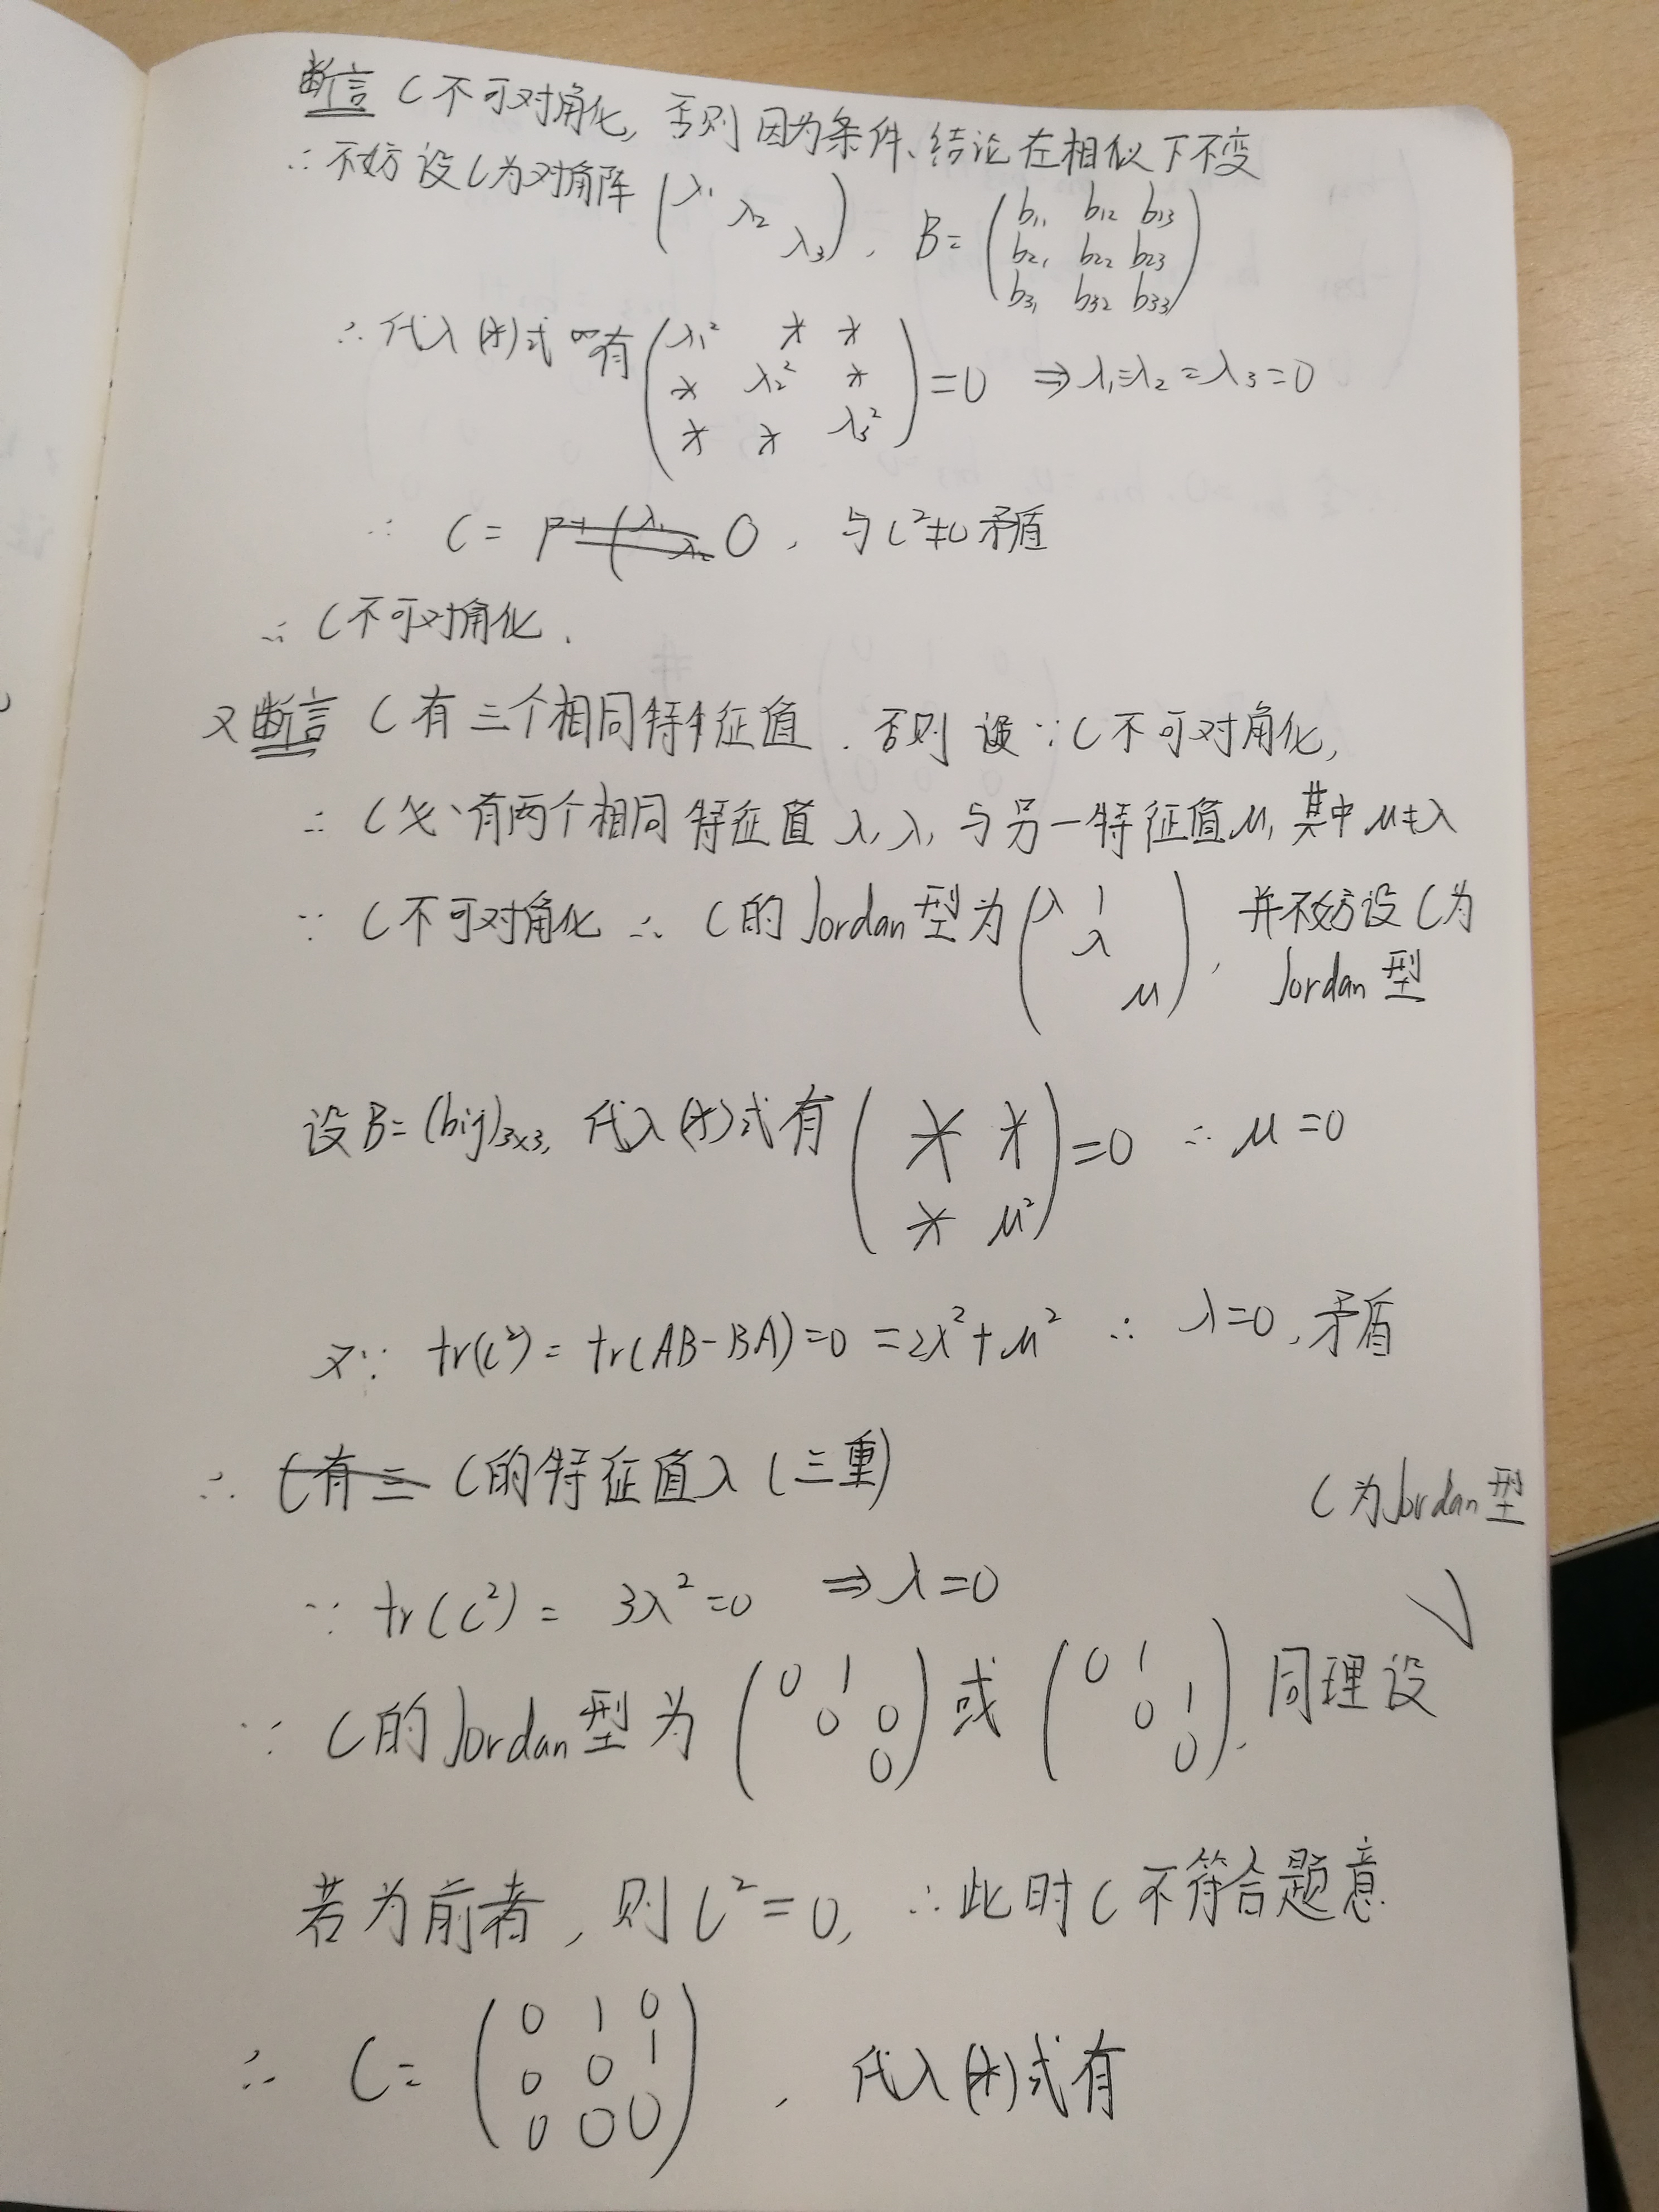 断言 C不可对角化, 否则因为条件、结论在相似下不变
∴ 不妨设C为对角阵 (λ₁ λ₂ λ₃), B= (b₁₁ b₁₂ b₁₃
b₂₁ b₂₂ b₂₃
b₃₁ b₃₂ b₃₃)
∴ 代入(*)式有 (λ₁² * *
* λ₂² *
* * λ₃²) =0 ⇒ λ₁=λ₂=λ₃=0
∴ C= 0, 与C²≠0矛盾
∴ C不可对角化.
又断言 C有三个相同特征值. 否则 ∵ C不可对角化,
∴ C必有两个相同特征值λ,λ, 与另一特征值μ, 其中μ≠λ
∵ C不可对角化 ∴ C的Jordan型为 (λ 1
λ
μ), 并不妨设C为
Jordan型
设B=(bij)₃ₓ₃, 代入(*)式有 (* *
* μ²) =0 ∴ μ=0
又∵ tr(C²)=tr(AB-BA)=0=2λ²+μ² ∴ λ=0, 矛盾
∴ C有三 C的特征值λ(三重)
C为Jordan型
∵ tr(C²)= 3λ²=0 ⇒λ=0
∵ C的Jordan型为 (0 1
0 0
0) 或 (0 1
0 1
0), 同理设
若为前者, 则C²=0, ∴此时C不符合题意
∴ C= (0 1 0
0 0 1
0 0 0), 代入(*)式有